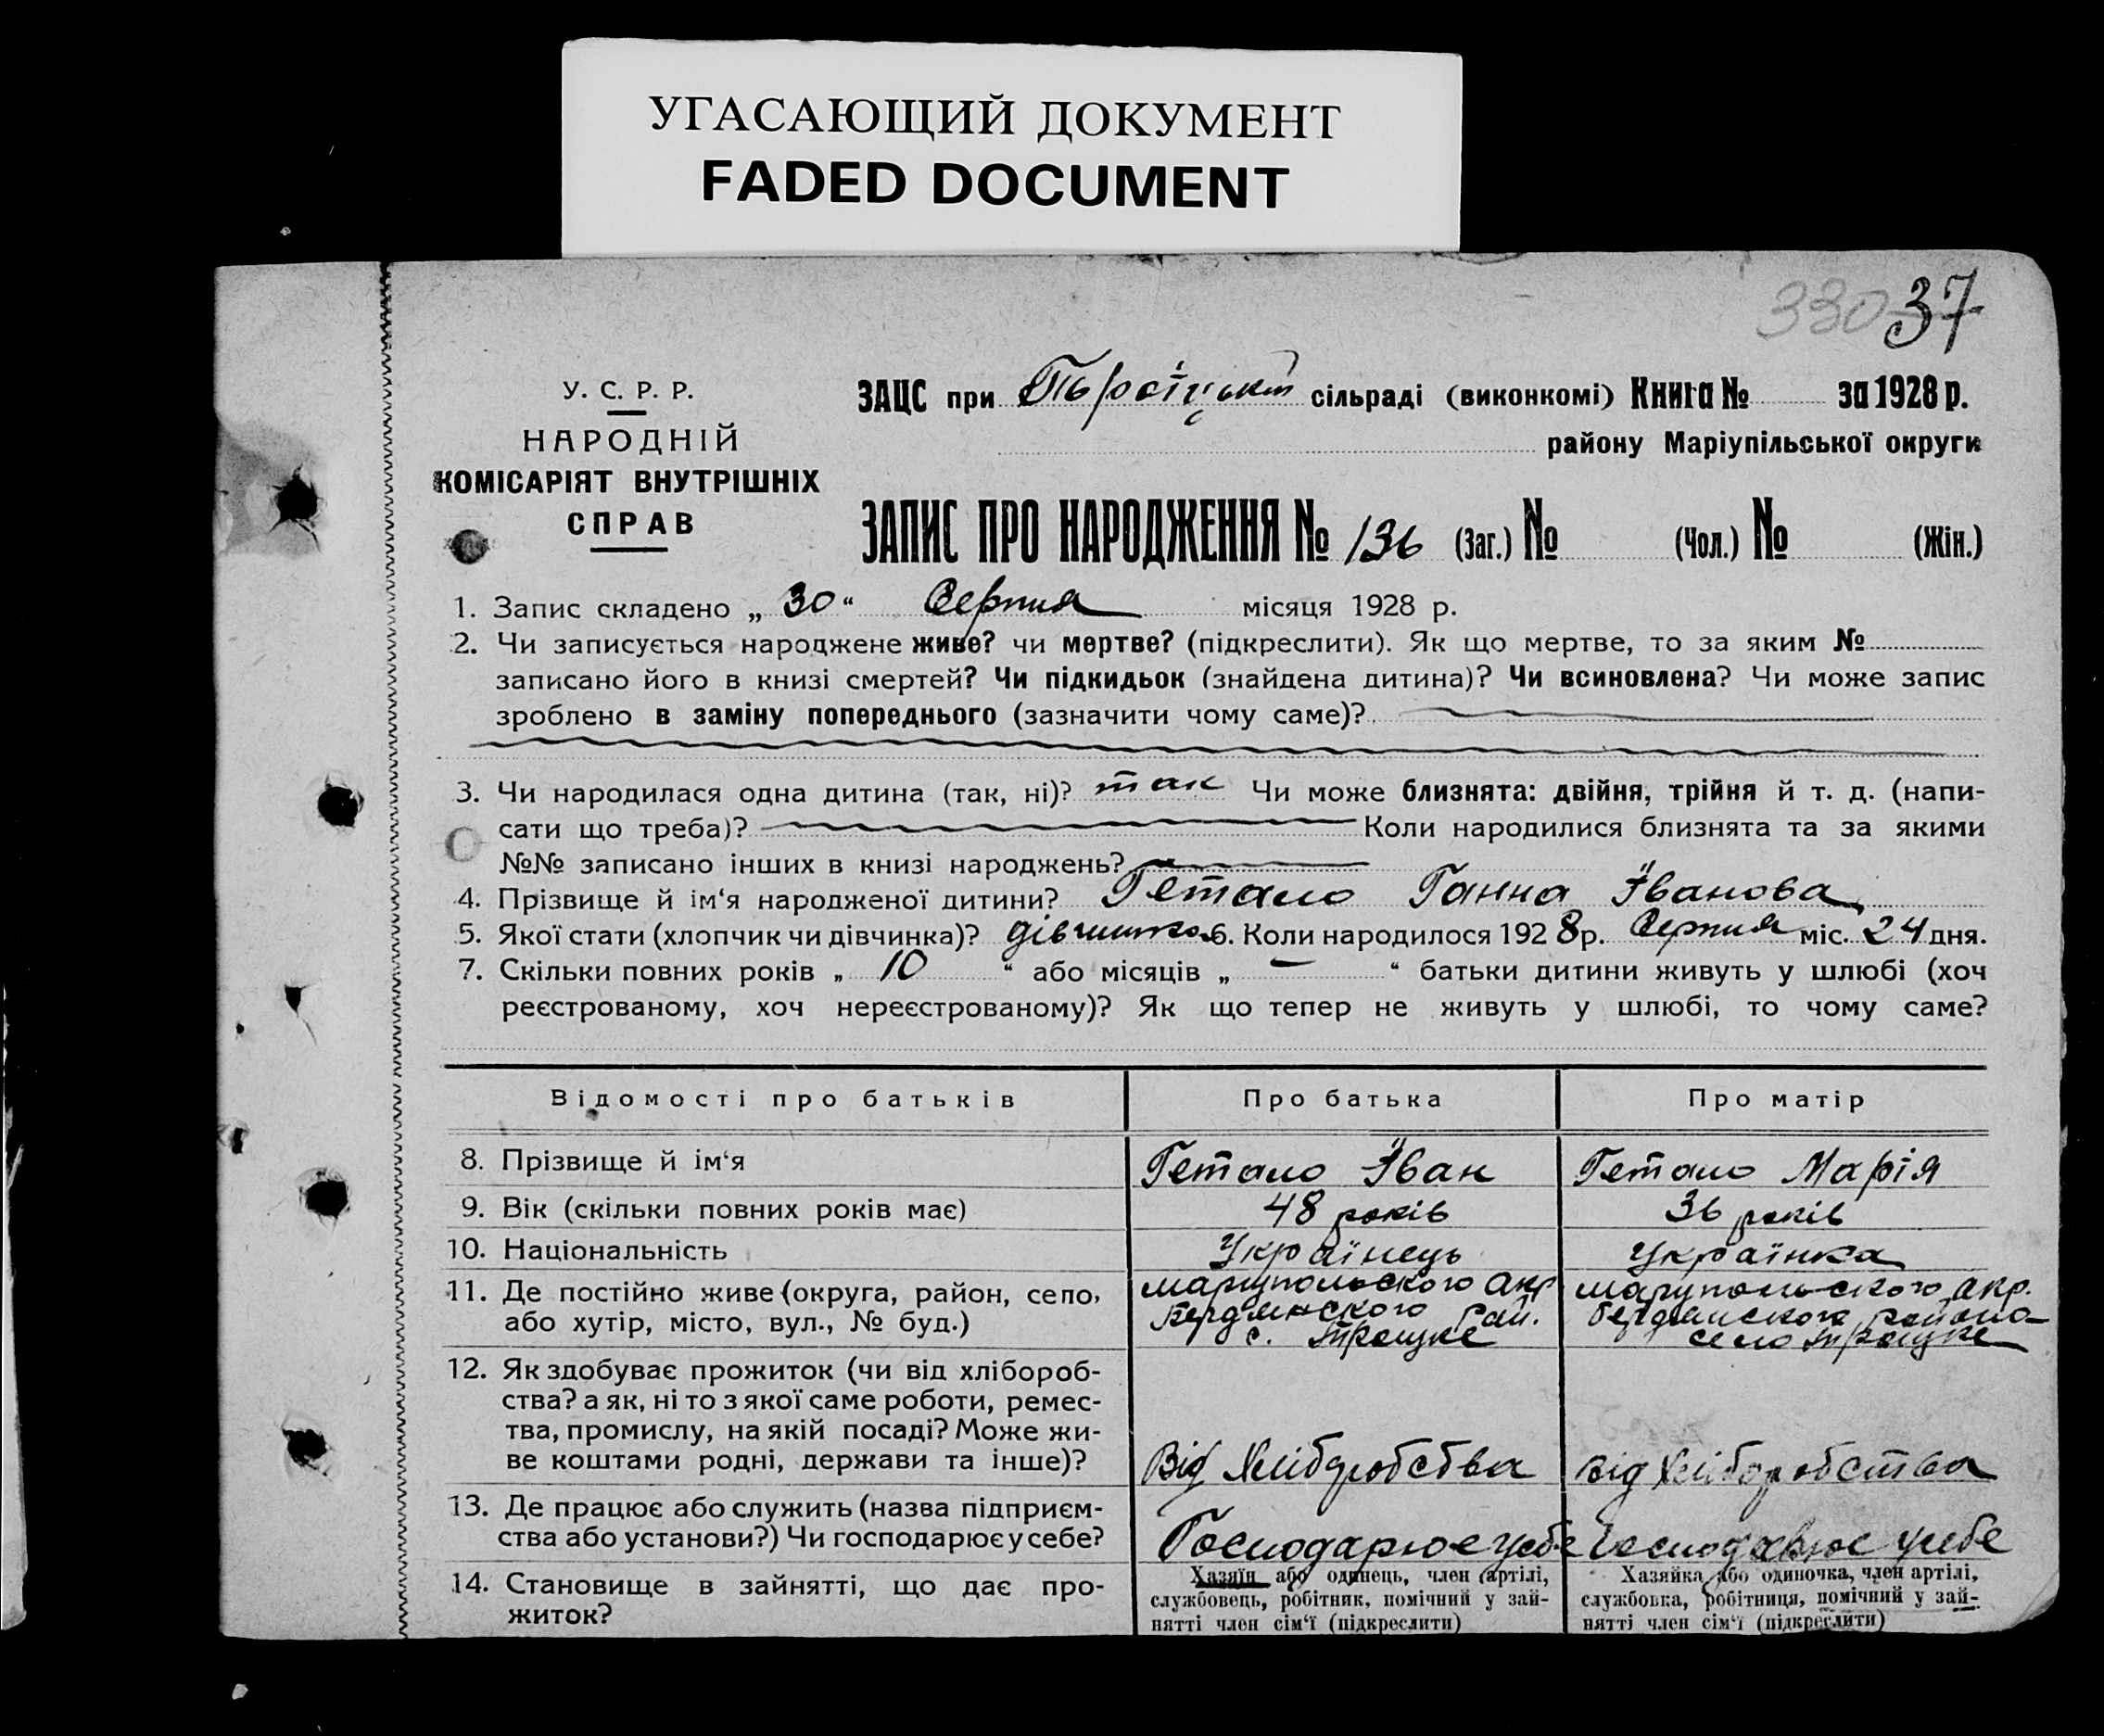 УГАСАЮЩИЙ ДОКУМЕНТ
FADED DOCUMENT
330 37
У. С. Р. Р.
НАРОДНІЙ
КОМІСАРІЯТ ВНУТРІШНІХ
СПРАВ
ЗАЦС при сільраді (виконкомі) Книга № за 1928 р.
району Маріупільської округи
ЗАПИС ПРО НАРОДЖЕННЯ № 136 (Заг.) № (Чол.) № (Жін.)
1. Запис складено „ 30 “ Серпня місяця 1928 р.
2. Чи записується народжене живе? чи мертве? (підкреслити). Як що мертве, то за яким №
записано його в книзі смертей? Чи підкидьок (знайдена дитина)? Чи всиновлена? Чи може запис
зроблено в заміну попереднього (зазначити чому саме)?
3. Чи народилася одна дитина (так, ні)? так Чи може близнята: двійня, трійня й т. д. (напи-
сати що треба)? Коли народилися близнята та за якими
№№ записано інших в книзі народжень?
4. Прізвище й ім‘я народженої дитини? Гетало Ганна Іванова
5. Якої стати (хлопчик чи дівчинка)? дівчинка 6. Коли народилося 1928 р. Серпня міс. 24 дня.
7. Скільки повних років „ 10 “ або місяців „ — “ батьки дитини живуть у шлюбі (хоч
реєстрованому, хоч нереєстрованому)? Як що тепер не живуть у шлюбі, то чому саме?
Відомості про батьків Про батька Про матір
8. Прізвище й ім‘я Гетало Іван Гетало Марія
9. Вік (скільки повних років має) 48 років 36 років
10. Національність Українець Українка
11. Де постійно живе (округа, район, село, Маріупольского окр. Маріупольского окр.
або хутір, місто, вул., № буд.) Бердянского рай. Бердянского района
с. Троцке село Троцке
12. Як здобуває прожиток (чи від хлібороб-
ства? а як, ні то з якої саме роботи, ремес-
тва, промислу, на якій посаді? Може жи-
ве коштами родні, держави та інше)? Від Хліборобства від Хліборобства
13. Де працює або служить (назва підприєм-
ства або установи?) Чи господарює у себе? Господарює у себе Господарює у себе
14. Становище в зайнятті, що дає про-
житок?
Хазяїн або одинець, член артілі,
службовець, робітник, помічний у зай-
нятті член сім‘ї (підкреслити)
Хазяйка або одиночка, член артілі,
службовка, робітниця, помічний у зай-
нятті член сім‘ї (підкреслити)